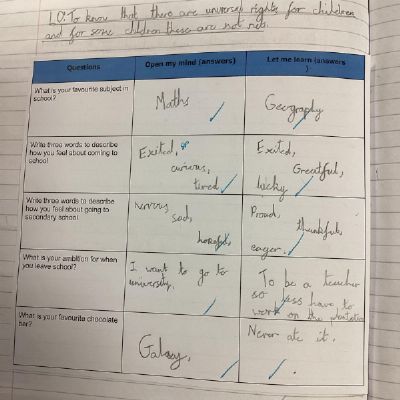 LO: To know that there are universal rights for children
and for some children these are not met.
Questions
Open my mind (answers)
Let me learn (answers
)
What is your favourite subject in
school?
Maths
Geography
Write three words to describe
how you feel about coming to
school
Exited,
curious,
tired
Exited,
Greatful,
lucky
Write three words to describe
how you feel about going to
secondary school
nervous
sad,
Proud,
thankful,
eager.
What is your ambition for when
you leave school?
I want to go to
university.
To be a teacher
so less have to
work on the plantation
What is your favourite chocolate
bar?
Galaxy.
Never ate it.